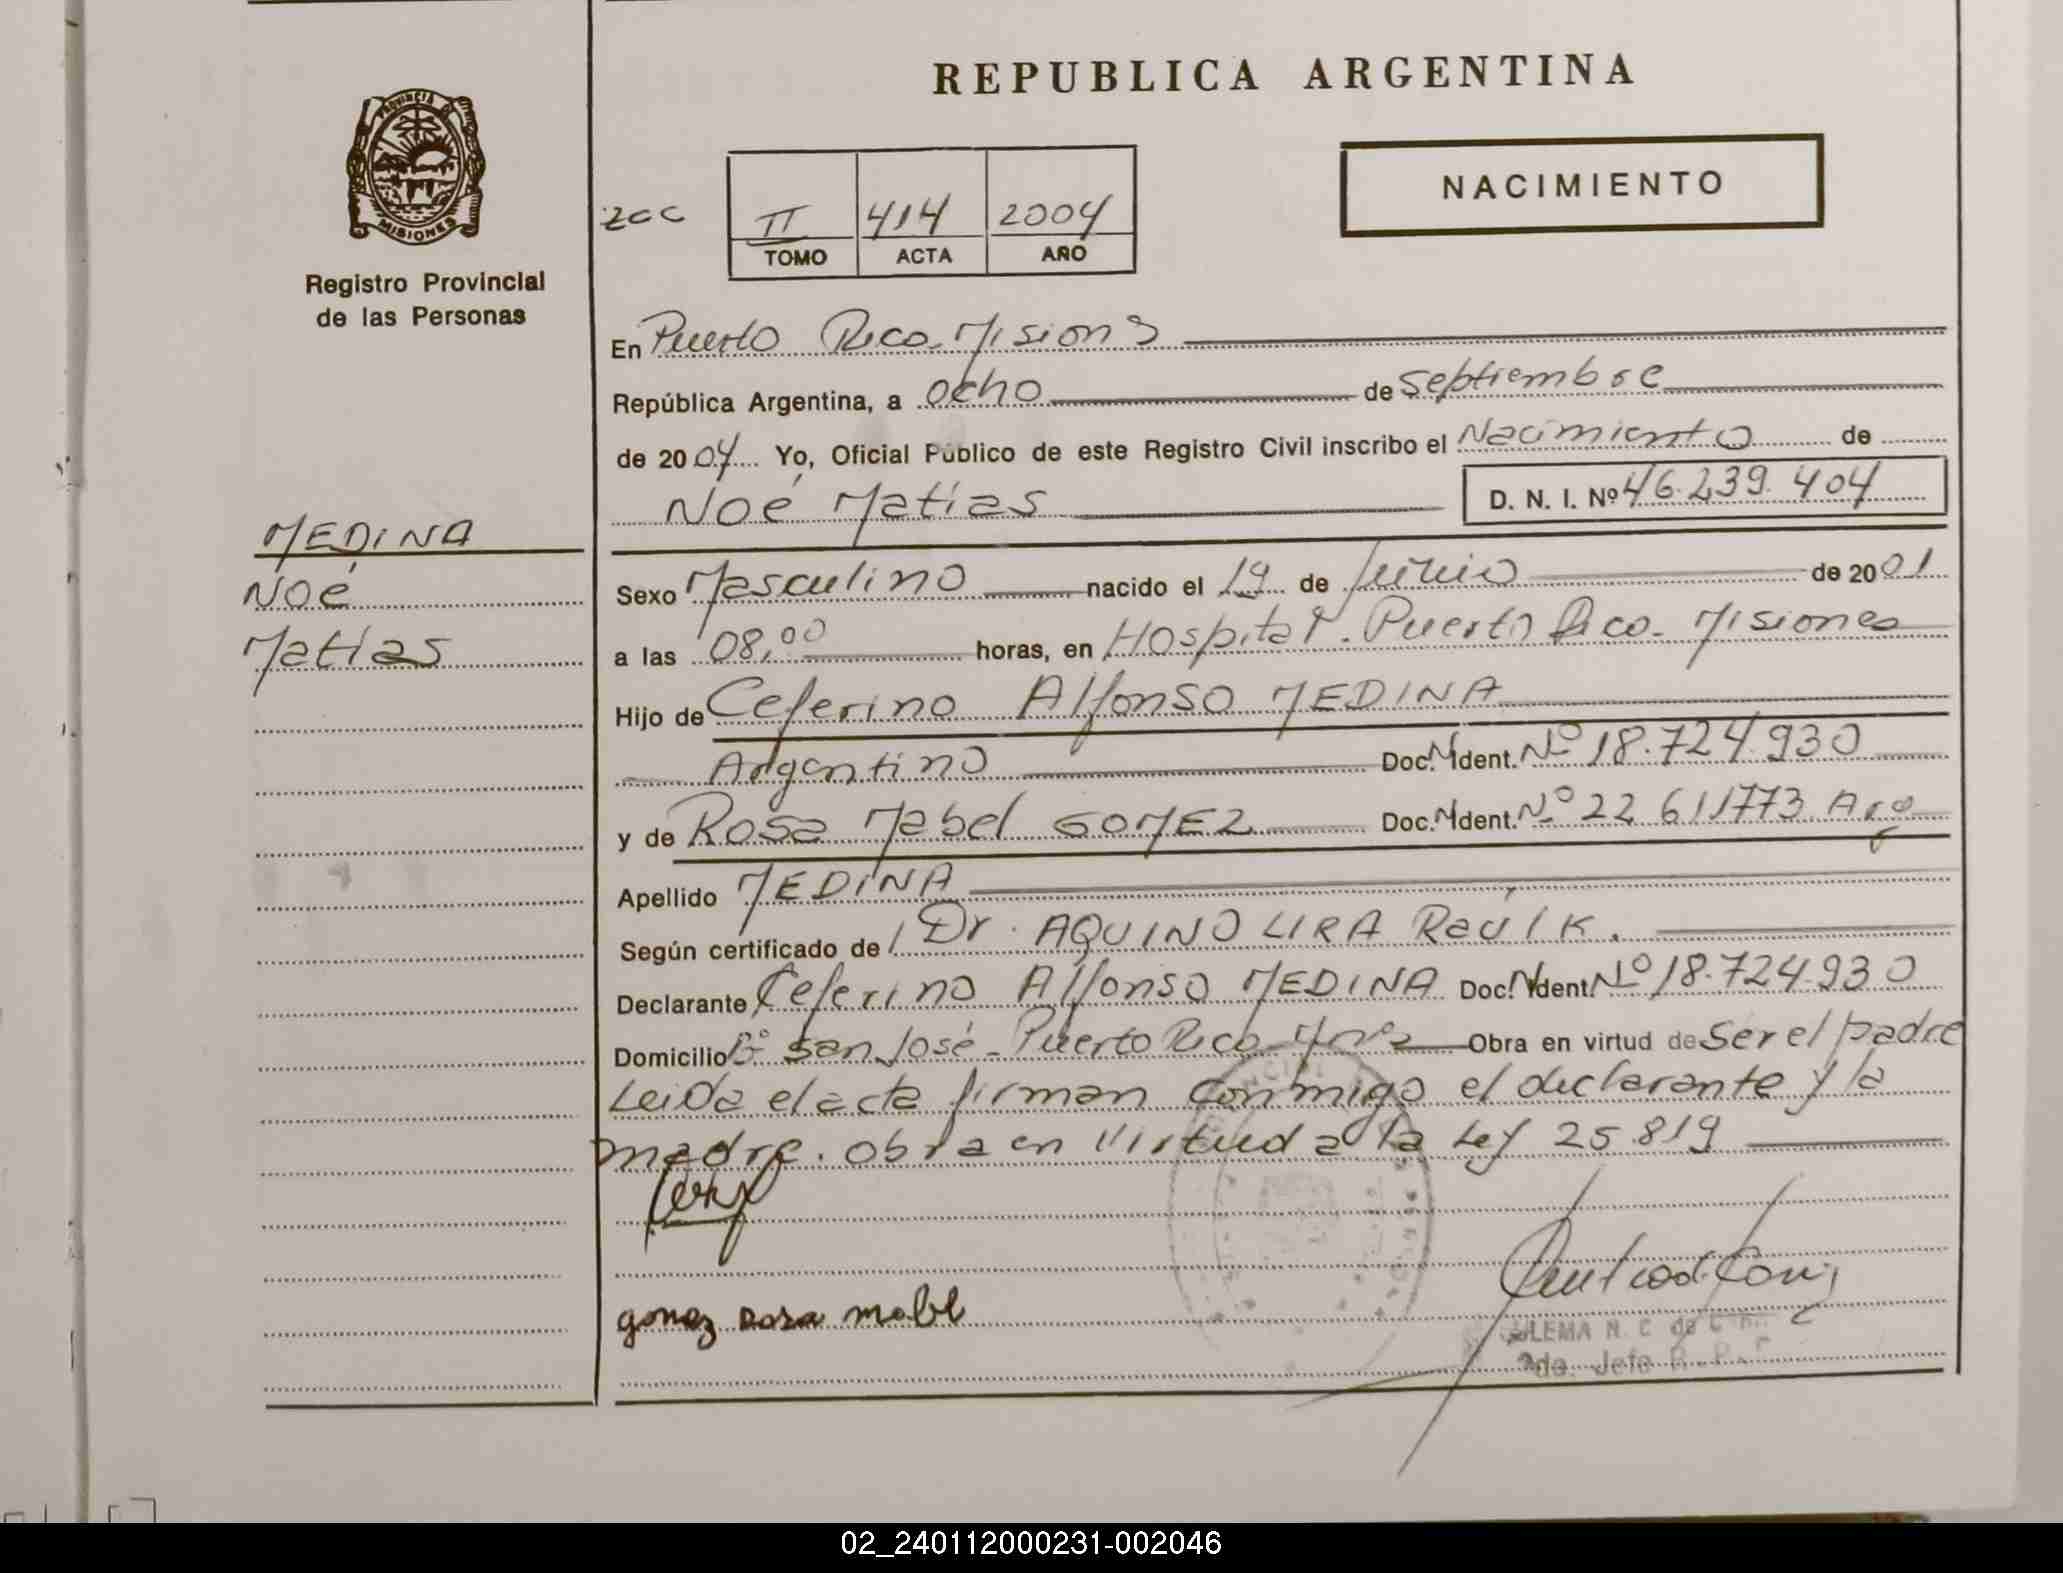 REPUBLICA ARGENTINA
PROVINCIA DE
MISIONES
Registro Provincial
de las Personas
NACIMIENTO
II 414 2004
TOMO ACTA AÑO
En Puerto Rico. Misiones
República Argentina, a ocho de septiembre
de 2004 Yo, Oficial Público de este Registro Civil inscribo el Nacimiento de
Noé Matías
D. N. I. Nº 46.239.404
MEDINA
Noé
Matías
Sexo Masculino nacido el 19 de Junio de 2001
a las 08,00 horas, en Hospital. Puerto Rico. Misiones
Hijo de Ceferino Alfonso MEDINA
Argentino Doc. N Ident. Nº 18.724.930
y de Rosa Mabel GOMEZ Doc. N Ident. Nº 22 611773 Arg
Apellido MEDINA
Según certificado de Dr. AQUINO LIRA Raúl K.
Declarante Ceferino Alfonso MEDINA Doc. N Ident. Nº 18.724.930
Domicilio Bº San José - Puerto Rico - Mnes Obra en virtud de Ser el padre
Leida el acta firman conmigo el declarante y la
madre. obra en virtud a la Ley 25.819
gomez Rosa mabel
ZULEMA N. C. de
2do. Jefe R. P.
02_240112000231-002046